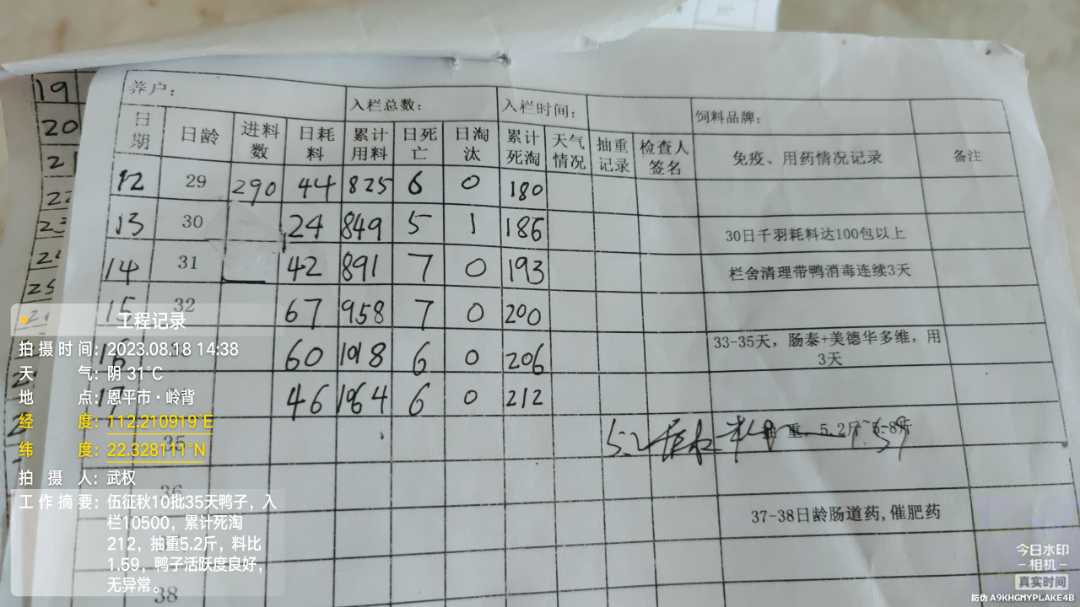 19
20
21
22
23
25
养户： 入栏总数： 入栏时间： 饲料品牌：
日期 日龄 进料数 日耗料 累计用料 日死亡 日淘汰 累计死淘 天气情况 抽重记录 检查人签名 免疫、用药情况记录 备注
12 29 290 44 825 6 0 180
13 30 24 849 5 1 186 30日千羽耗料达100包以上
14 31 42 891 7 0 193 栏舍清理带鸭消毒连续3天
15 32 67 958 7 0 200
16 60 1018 6 0 206 33-35天，肠泰+美德华多维，用3天
17 46 1064 6 0 212
35 5.2斤 重 5.2斤
36
37-38日龄肠道药,催肥药
38
工程记录
拍摄时间：2023.08.18 14:38
天气：阴 31℃
地点：恩平市·岭背
经度：112.210919°E
纬度：22.328111°N
拍摄人：武权
工作摘要：伍征秋10批35天鸭子，入
栏10500，累计死淘
212，抽重5.2斤，料比
1.59，鸭子活跃度良好，
无异常。
今日水印
相机
真实时间
防伪 A9KHGMYPLAKE4B